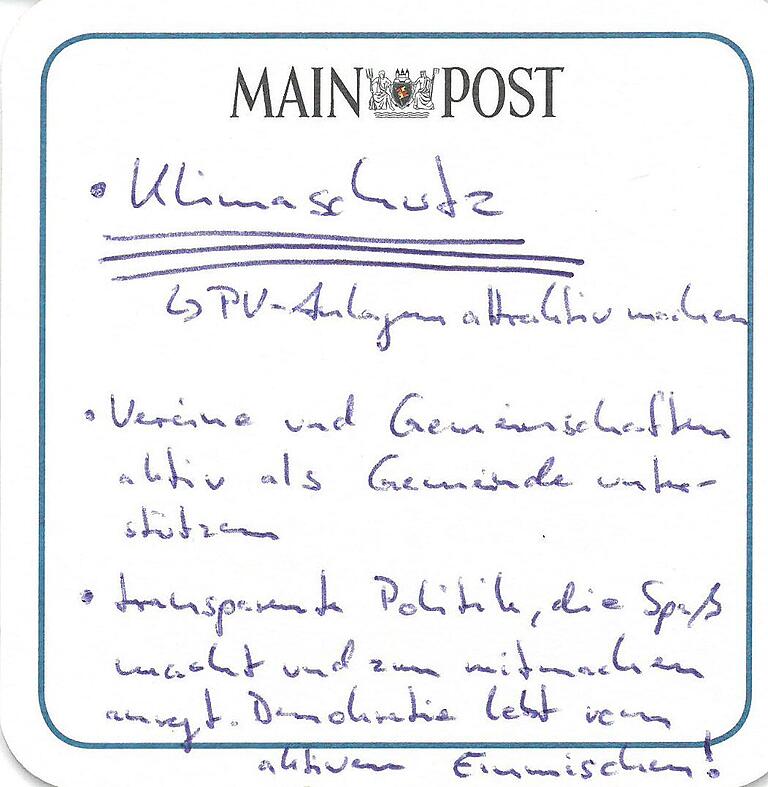 MAIN POST
• Klimaschutz
↳ PV-Anlagen attraktiv machen
• Vereine und Gemeinschaften
aktiv als Gemeinde unter-
stützen
• transparente Politik, die Spaß
macht und zum mitmachen
anregt. Demokratie lebt vom
aktiven Einmischen!